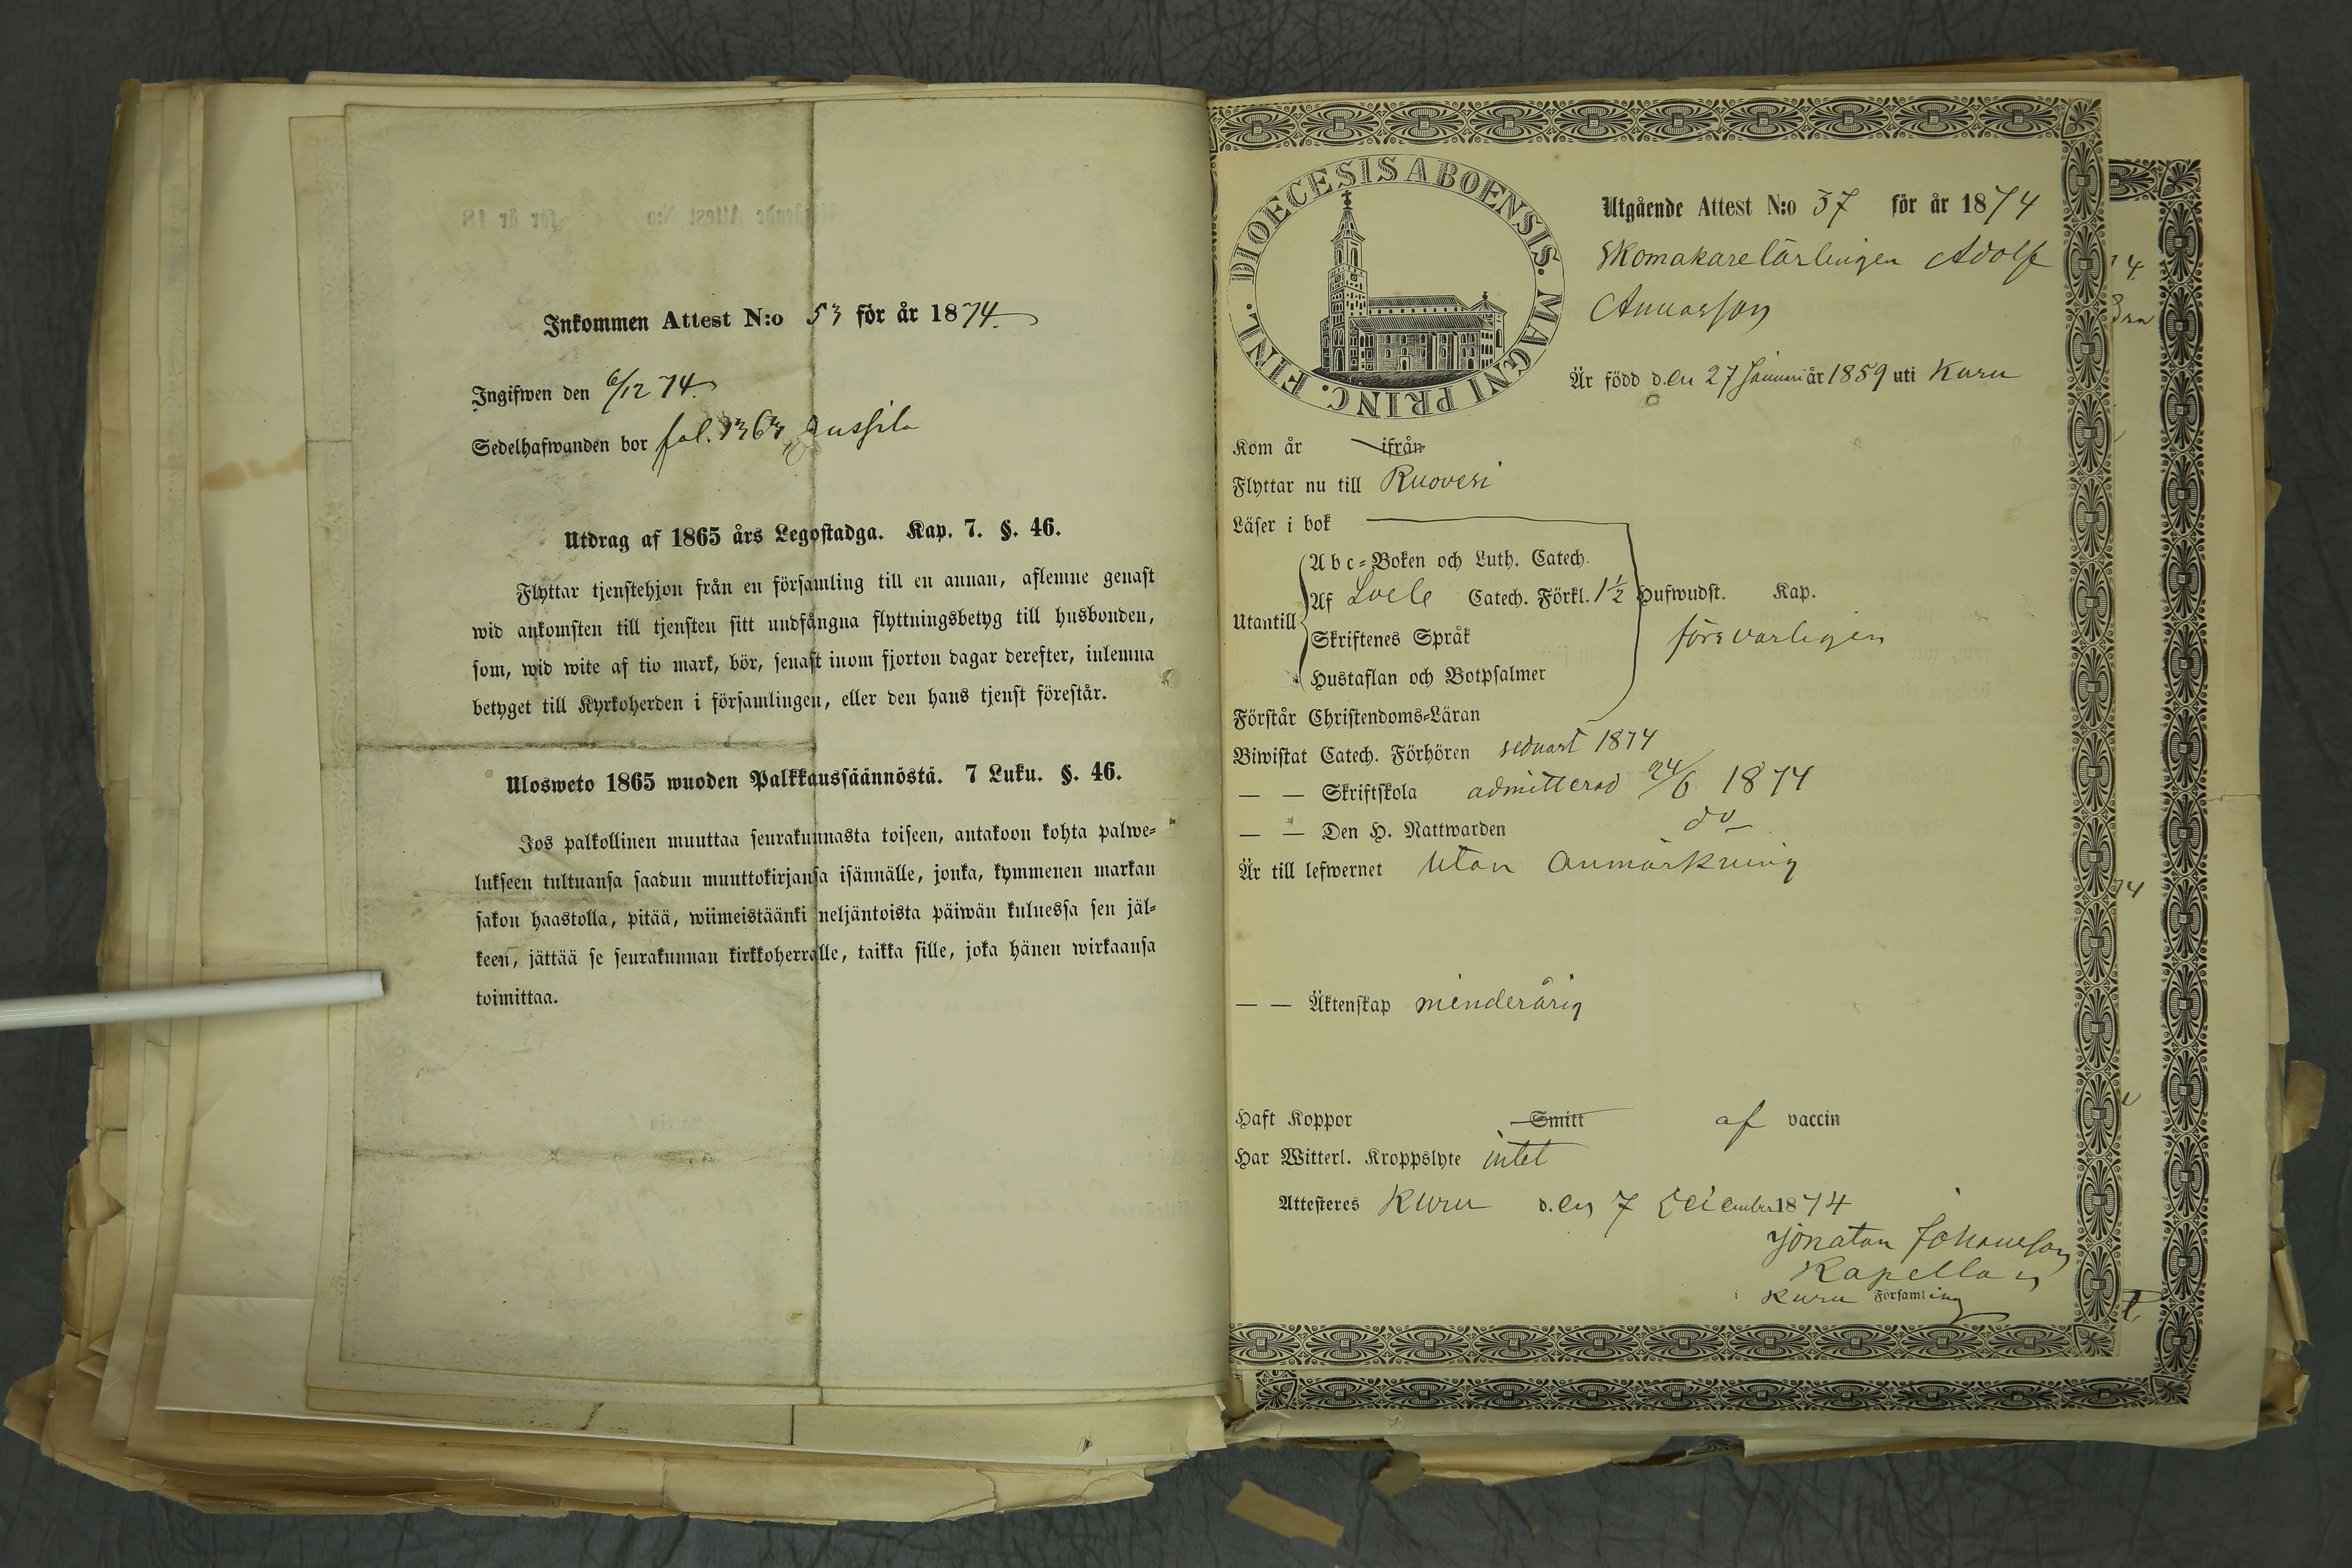 Inkommen Attest N:o 53 för år 1874.
Ingifwen den 6/12 74.
Sedelhafwanden bor fol. 1363 Jussila
Utdrag af 1865 års Legostadga. Kap. 7. §. 46.
Flyttar tjenstehjon från en församling till en annan, aflemne genast
wid ankomsten till tjensten sitt undfångna flyttningsbetyg till husbonden,
som, wid wite af tio mark, bör, senast inom fjorton dagar derefter, inlemna
betyget till Kyrkoherden i församlingen, eller den hans tjenst förestår.
Ulosweto 1865 wuoden Palkkaussäännöstä. 7 Luku. §. 46.
Jos palkollinen muuttaa seurakunnasta toiseen, antakoon kohta palwe-
lukseen tultuansa saadun muuttokirjansa isännälle, jonka, kymmenen markan
sakon haastolla, pitää, wiimeistäänki neljäntoista päiwän kuluessa sen jäl-
keen, jättää se seurakunnan kirkkoherralle, taikka sille, joka hänen wirkaansa
toimittaa.
DIOECESIS ABOENSIS. MAGNI PRINC. FINL.
Utgående Attest N:o 37 för år 1874
Skomakarelärlingen Adolf
Annasson
Är född d.en 27 Januari år 1859 uti Kuru
Kom år ifrån
Flyttar nu till Ruovesi
Läser i bok
Abc-Boken och Luth. Catech.
Af Catech. Förkl. 1½ Hufwudst. Kap.
Utantill
Skriftenes Språk försvarligen
Hustaflan och Botpsalmer
Förstår Christendoms-Läran
Biwistat Catech. Förhören sednast 1874
— — Skriftskola admitterad 24/6 1874
— — Den H. Nattwarden do
Är till lefwernet utan anmärkning
— — Äktenskap minderårig
Haft Koppor Smitt af vaccin
Har Witterl. Kroppslyte intet
Attesteres Kuru d.en 7 December 1874
Jonatan Johansson
Kapellan
i Kuru Församling